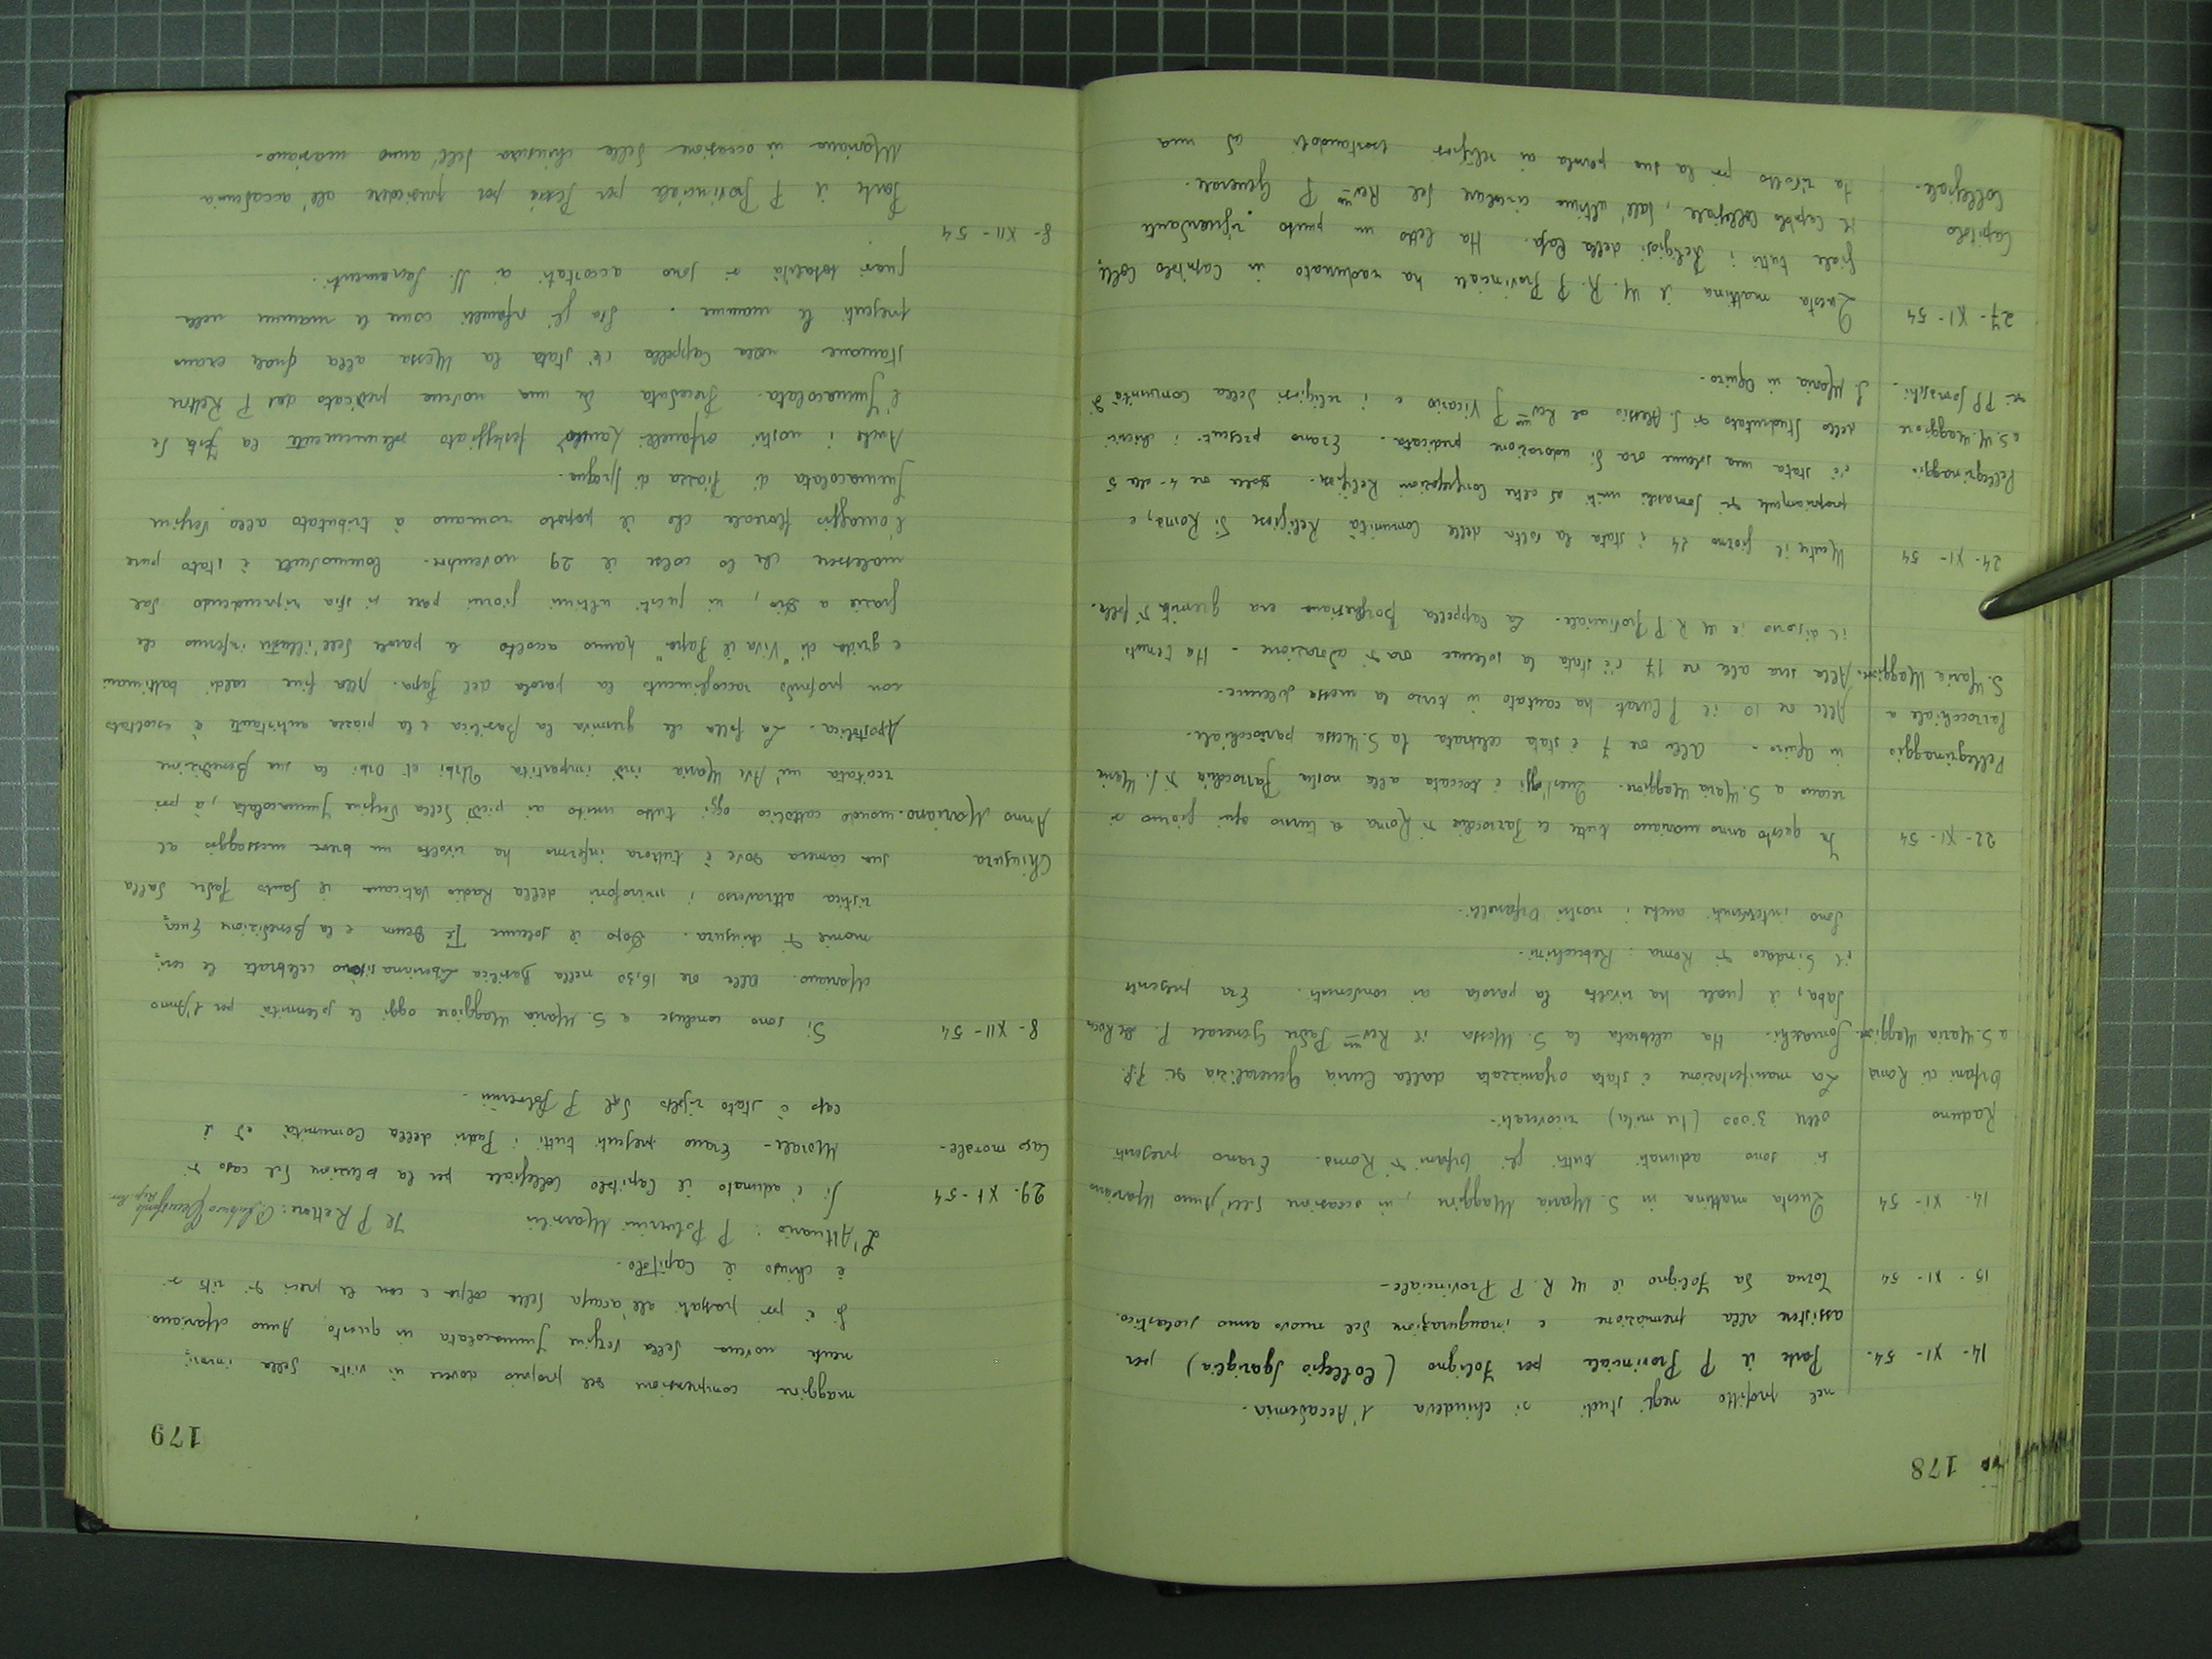 178
nel profitto negli studi si chiudeva l'Accademia.
14- XI- 54. Parte il P Provinciale per Foligno (Collegio Sgariglia) per
assistere alla premiazione e inaugurazione del nuovo anno scolastico.
15- XI- 54 Torna da Foligno il M R. P Provinciale-
14- XI- 54 Questa mattina in S. Maria Maggiore, in occasione dell'Anno Mariano
si sono adunati tutti gli Orfani di Roma. Erano presenti
Raduno oltre 3.000 (tre mila) ricoverati-
Orfani di Roma La manifestazione è stata organizzata dalla Curia Generalizia dei P.P.
a S. Maria Maggiore. Somaschi. Ha celebrato la S. Messa il Rev.mo Padre Generale P. De Rocco
Saba, il quale ha rivolto la parola ai convenuti. Era presente
il Sindaco di Roma: Rebecchini.
Sono intervenuti anche i nostri Orfanelli.
22- XI- 54 In questo anno mariano tutte le Parrocchie di Roma a turno ogni giorno si
recano a S. Maria Maggiore. Quest'oggi è toccata alla nostra Parrocchia di S. Maria
Pellegrinaggio in Aquiro- Alle ore 7 è stata celebrata la S. Messa parrocchiale.
Parrocchiale a Alle ore 10 il P Curato ha cantato in terzo la messa solenne-
S. Maria Maggiore. Alla sera alle ore 17 c'è stata la solenne ora di adorazione - Ha tenuto
il discorso il M R. P Provinciale- La Cappella Borghesiana era gremita di folla.
24- XI- 54 Mentre il giorno 24 è stata la volta delle Comunità Religiose di Roma, e
propriamente dei Somaschi uniti ad altre Congregazioni Religiose- dalle ore 4- alle 5
Pellegrinaggio c'è stata una solenne ora di adorazione predicata. Erano presenti i chierici
a S. M. Maggiore dello Studentato di S. Alessio col Rev.mo P Vicario e i religiosi della comunità di
dei PP Somaschi. S. Maria in Aquiro-
27- XI- 54 Questa mattina il M. R. P Provinciale ha radunato in Capitolo Colle,
giale tutti i Religiosi della Casa. Ha letto un punto riguardante
Capitolo il Capitolo Collegiale, dall'ultima circolare del Rev.mo P Generale.
Collegiale. Ha rivolto poi la sua parola ai religiosi esortandoli ad una
179
maggiore comprensione del proprio dovere in vista della immi,
nente novena della Vergine Immacolata in questo Anno Mariano.
Si è poi passati all'accusa delle colpe e con le preci di rito si
è chiuso il Capitolo.
L'Attuario: P Polverini Marsilio Il P Rettore:
29- XI- 54 Si è adunato il Capitolo Collegiale per la soluzione del caso di
Caso morale- Morale- Erano presenti tutti i Padri della Comunità ed il
caso è stato risolto dal P Polverini.
8- XII- 54 Si sono concluse a S. Maria Maggiore oggi le solennità per l'Anno
Mariano. Alle ore 16,30 nella Basilica Liberiana si sono celebrate le ceri,
monie di chiusura. Dopo il solenne Te Deum e la Benedizione Euca,
ristica attraverso i microfoni della Radio Vaticana il Santo Padre dalla
Chiusura sua camera dove è tuttora infermo ha rivolto un breve messaggio al
Anno Mariano. mondo cattolico oggi tutto unito ai piedi della Vergine Immacolata, à poi
recitata un'Ave Maria indi impartita Urbi et Orbi la sua Benedizione
Apostolica. La folla che gremiva la Basilica e la piazza antistante è ascoltato
con profondo raccoglimento la parola del Papa. Alla fine caldi battimani
e grida di "Viva il Papa" hanno accolto le parole dell'illustre infermo che
grazie a Dio, in questi ultimi giorni pare si stia riprendendo dal
malessere che lo colse il 29 novembre- Commovente è stato pure
l'omaggio floreale che il popolo romano à tributato alla Vergine
Immacolata di Piazza di Spagna.
Anche i nostri orfanelli hanno festeggiato solennemente la festa de
l'Immacolata. Preceduta da una novena predicata dal P Rettore
stamane nella Cappella c'è stata la Messa alla quale erano
presenti le mamme. Sia gli orfanelli come le mamme nella
quasi totalità si sono accostati ai SS. Sacramenti.
8- XII- 54
Parte il P Provinciale per Pescia per presiedere all'accademia
Mariana in occasione della chiusura dell'anno mariano-